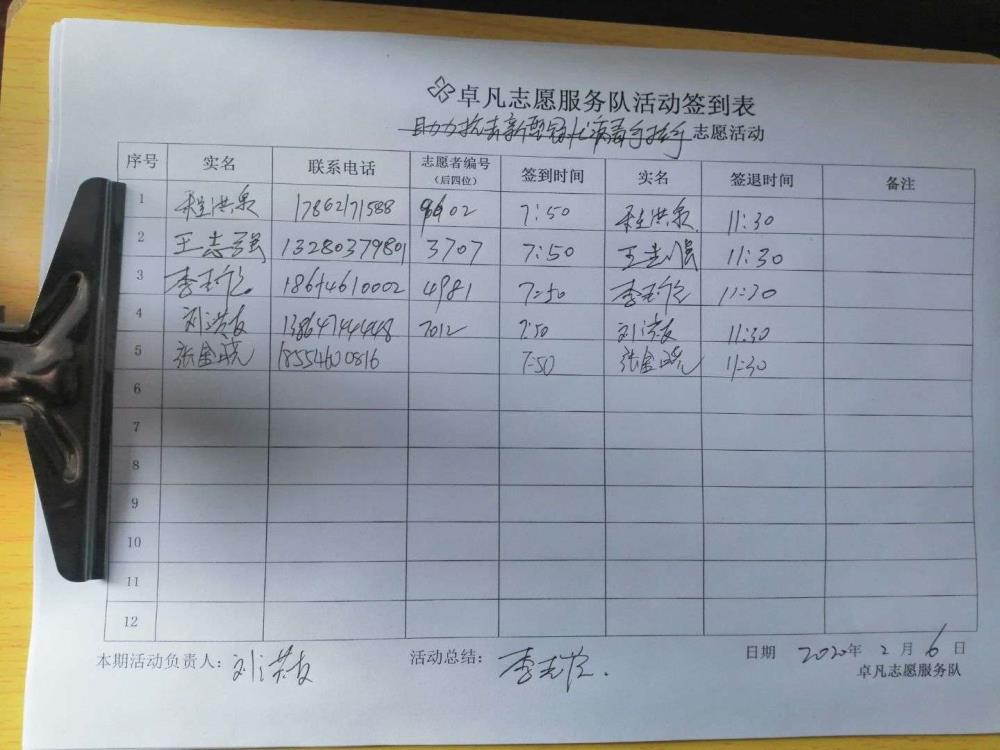 卓凡志愿服务队活动签到表
助力抗击新型冠状病毒手拉手志愿活动
序号 实名 联系电话 志愿者编号（后四位） 签到时间 实名 签退时间 备注
1 程洪泉 17862171588 02 7:50 程洪泉 11:30
2 王志强 13280379801 3707 7:50 王志强 11:30
3 李 18614610002 4981 7:50 李 11:30
4 刘洪友 13864744448 7012 7:50 刘洪友 11:30
5 张金晓 18554600816 7:50 张金晓 11:30
6
7
8
9
10
11
12
本期活动负责人：刘洪友 活动总结：李 日期 2020年2月6日
卓凡志愿服务队